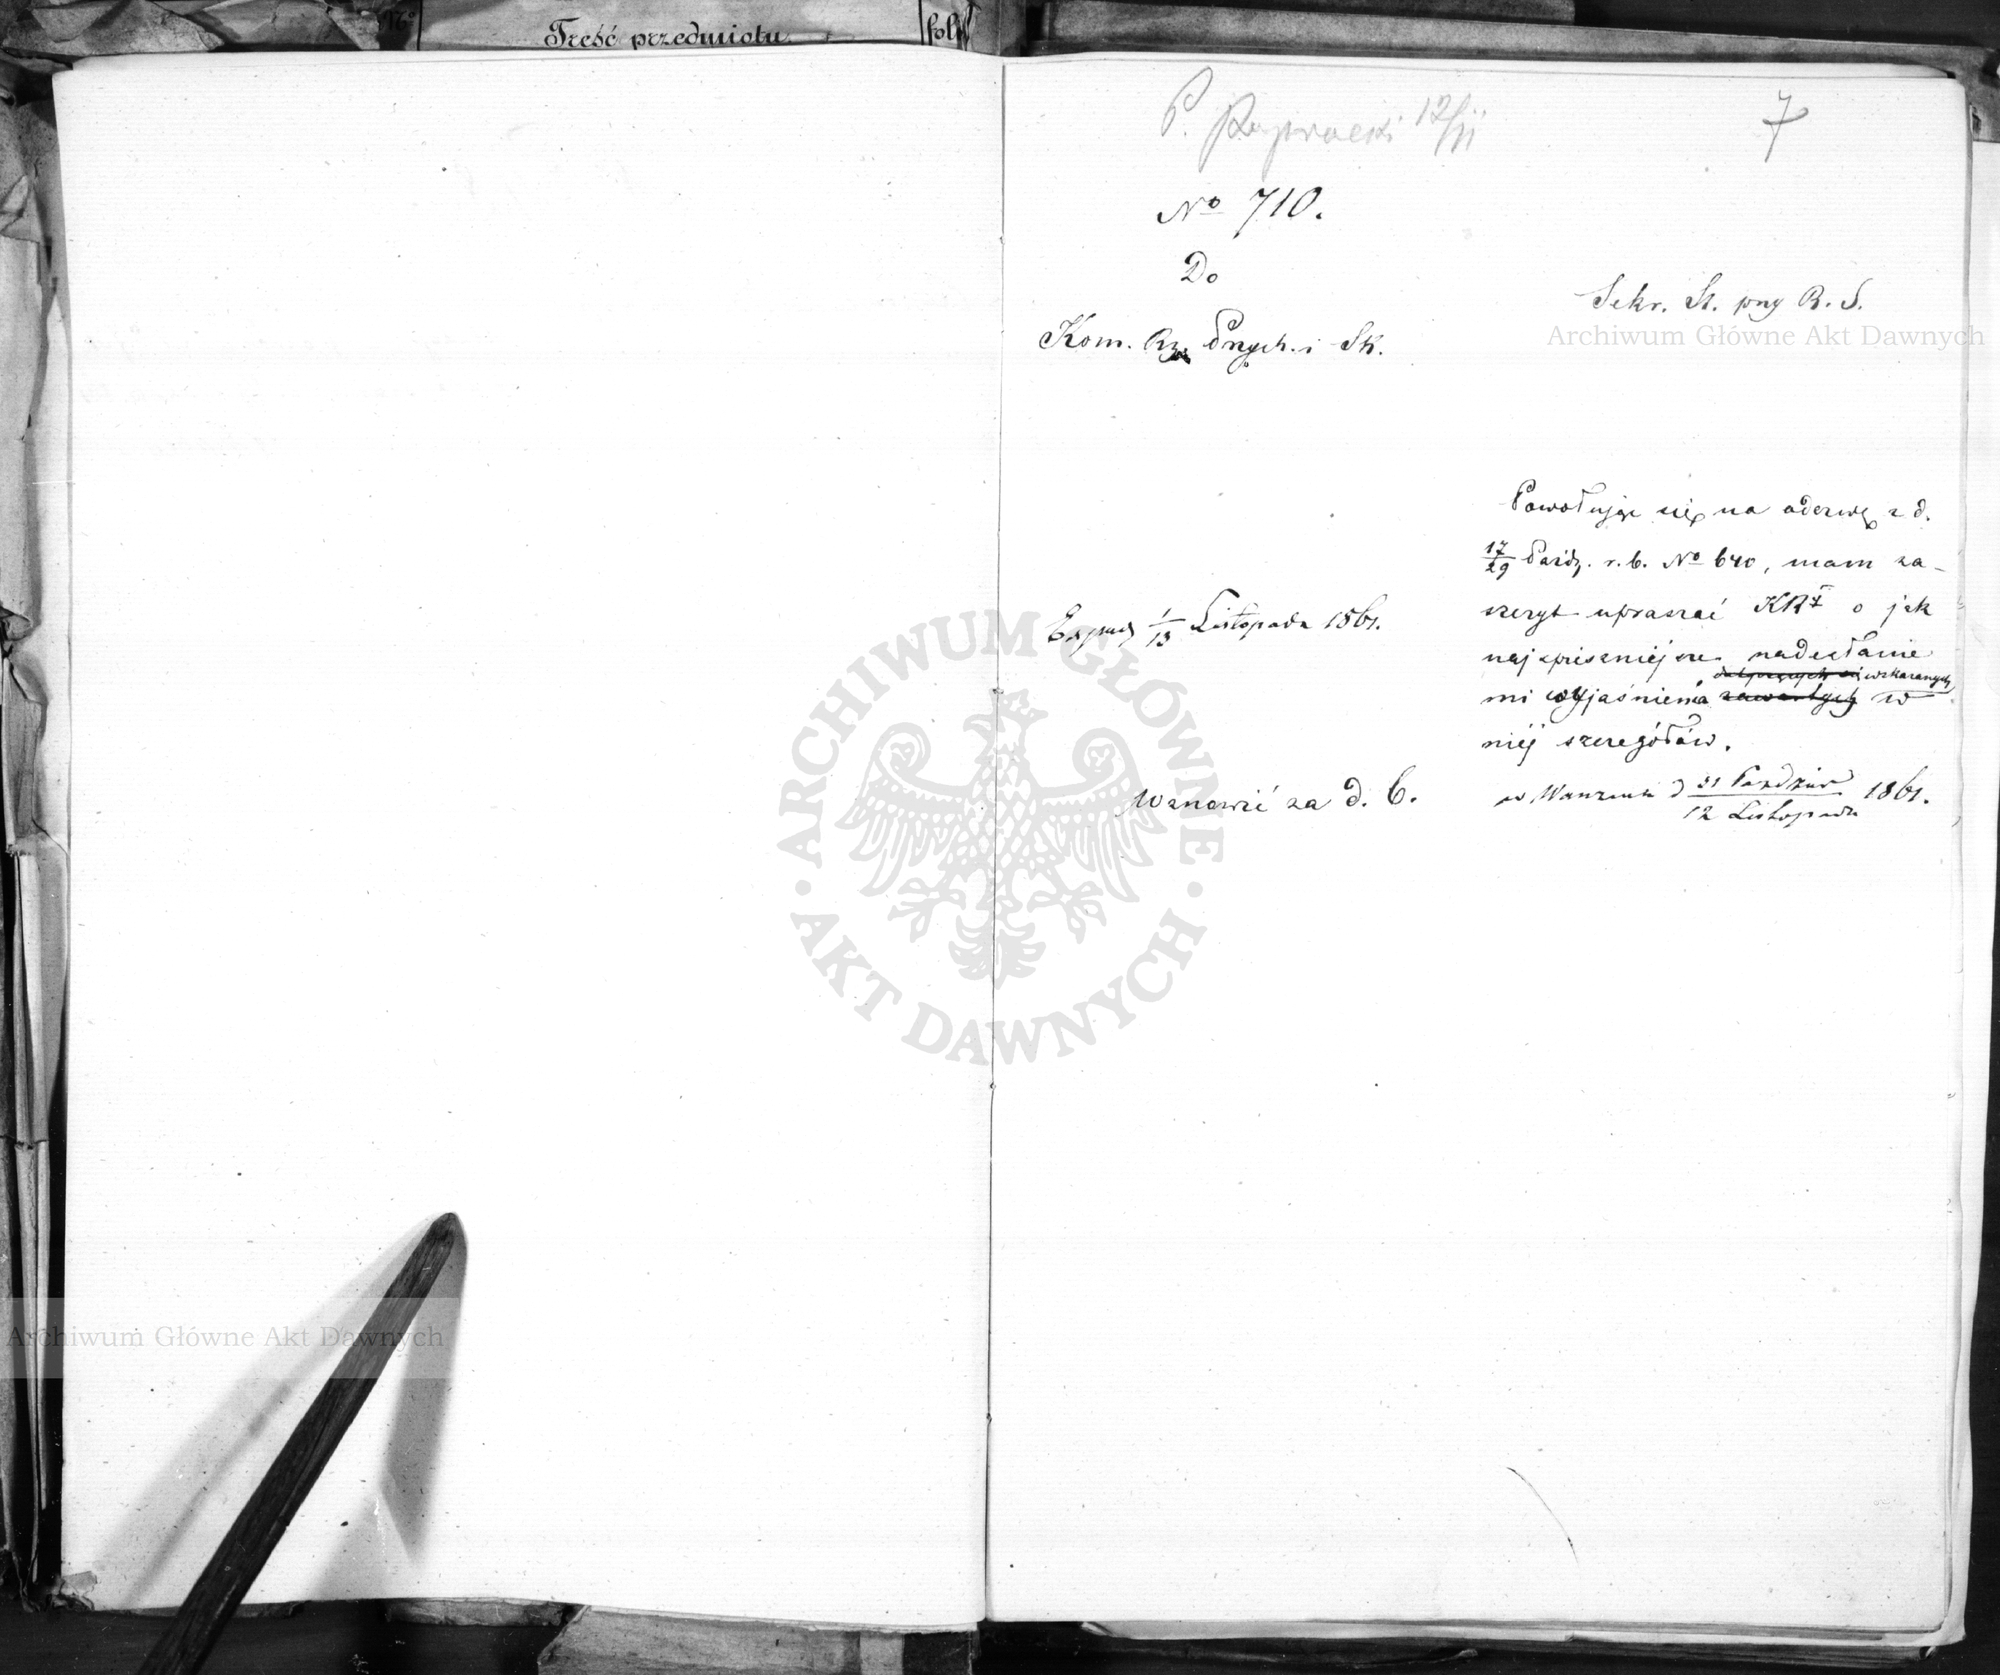 No
Treść przedmiotu
fol
P. 12/11
7
No 710.
Do
Kom. Rz. Przych. i Sk.
Sekr. St. przy R. S.
Archiwum Główne Akt Dawnych
Powołując się na odezwę z d.
17/29 Paźdz. r.b. No 640, mam za-
szczyt upraszać KRz o jak
najspieszniejsze nadesłanie
wskazanych
mi wyjaśnienia zawartych w
niej szczegółów.
w Warszawie d 31 Paździer / 12 Listopada 1861.
1/13 Listopada 1861.
Wznowić za d. 6.
ARCHIWUM GŁÓWNE
AKT DAWNYCH
Archiwum Główne Akt Dawnych